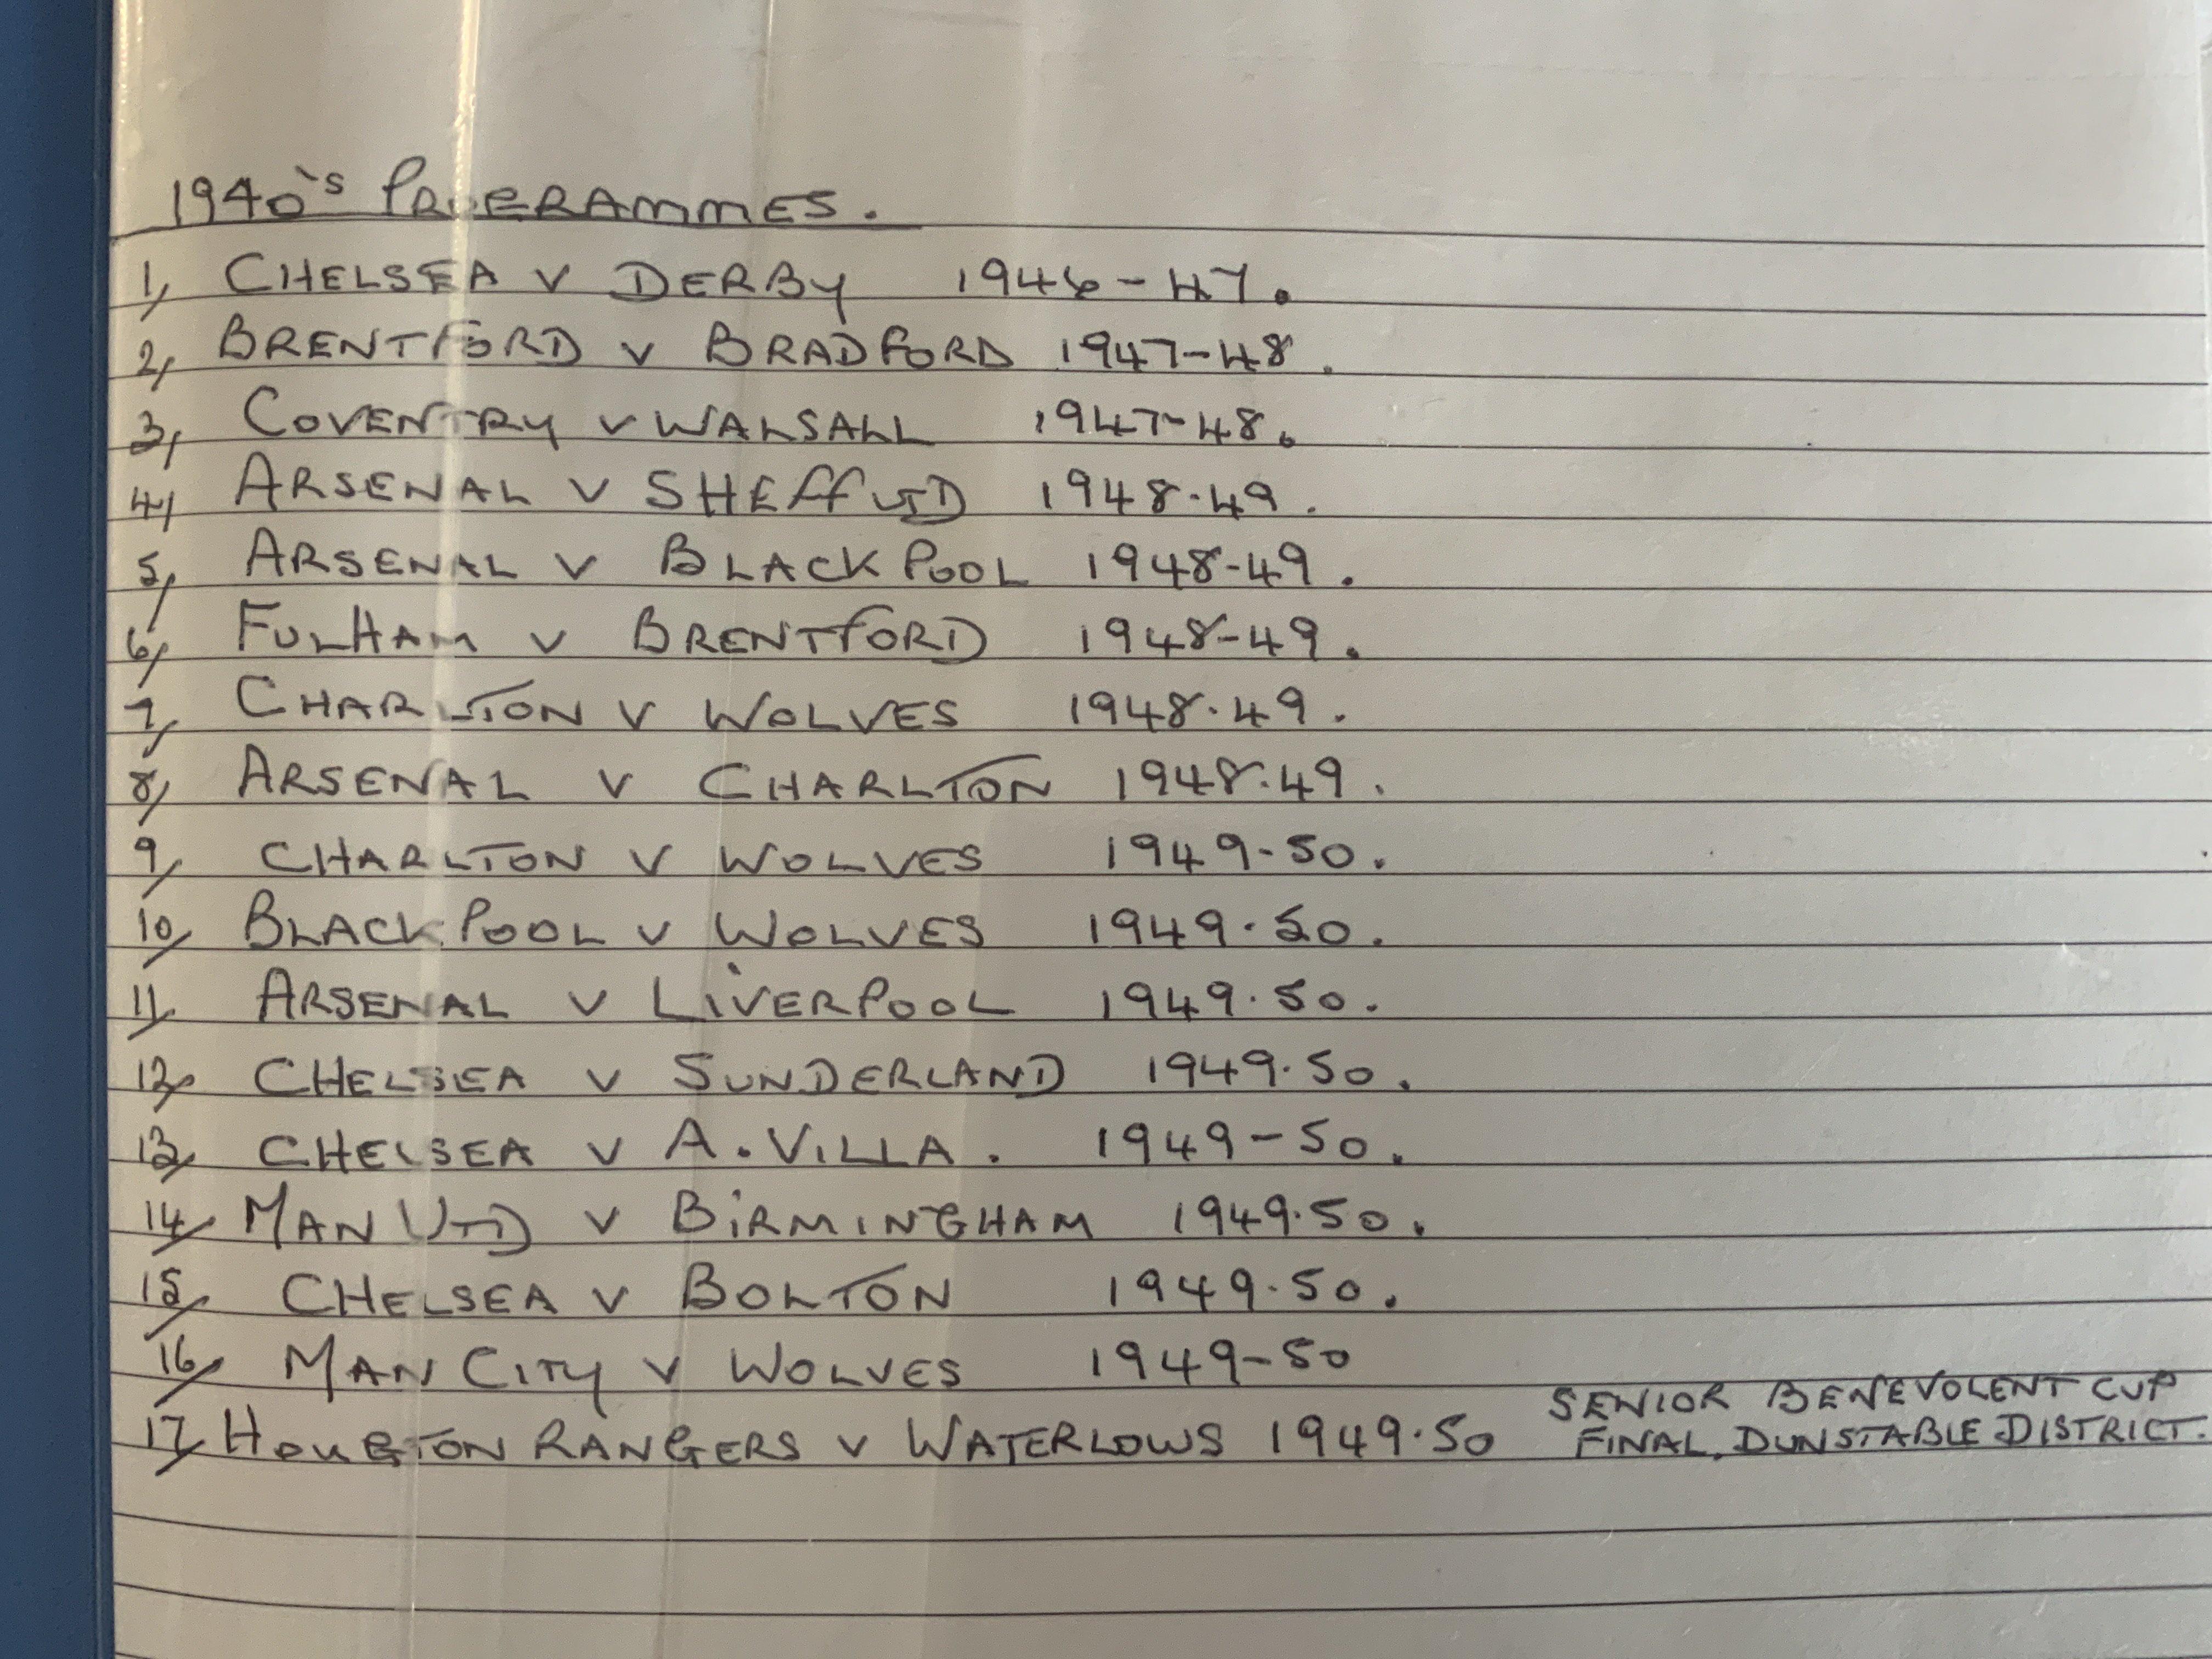 1940's PROGRAMMES.
1, CHELSEA V DERBY 1946-47.
2, BRENTFORD V BRADFORD 1947-48.
3, COVENTRY V WALSALL 1947-48.
4, ARSENAL V SHEFF UTD 1948.49.
5, ARSENAL V BLACKPOOL 1948-49.
6, FULHAM V BRENTFORD 1948-49.
7, CHARLTON V WOLVES 1948.49.
8, ARSENAL V CHARLTON 1948.49.
9, CHARLTON V WOLVES 1949-50.
10, BLACKPOOL V WOLVES 1949.50.
11, ARSENAL V LIVERPOOL 1949.50.
12, CHELSEA V SUNDERLAND 1949.50.
13, CHELSEA V A. VILLA. 1949-50.
14, MAN UTD V BIRMINGHAM 1949.50.
15, CHELSEA V BOLTON 1949.50.
16, MAN CITY V WOLVES 1949-50
17, HOUGTON RANGERS V WATERLOWS 1949.50 SENIOR BENEVOLENT CUP
FINAL, DUNSTABLE DISTRICT.